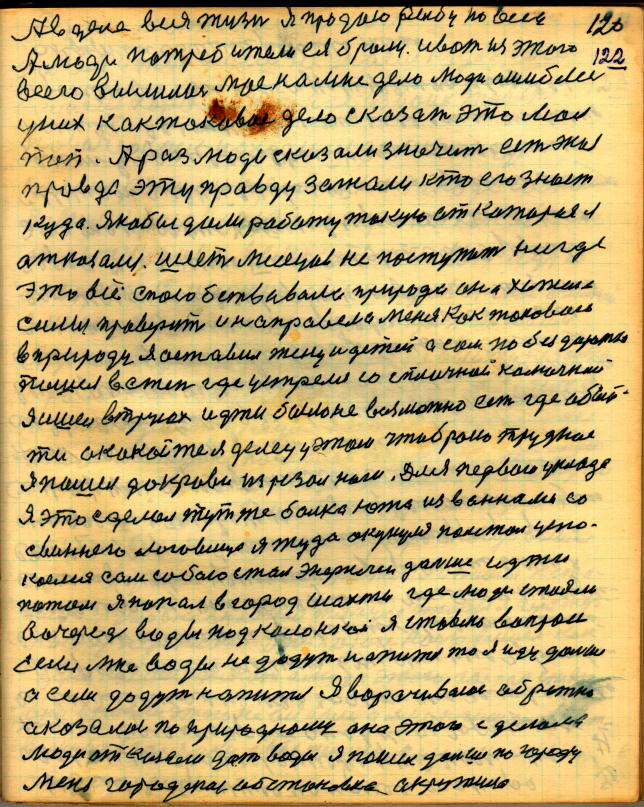 А в дела вся жизн я продаю рекбу по всем 120
А люди потребителися брали. и вот из этого 122
всего вышила мое на мне дело люди ошиблися
у них как таковое дело сказат это мая
тай. А раз люди сказали значит ест жил
провда эту правду загнали кто его знает
куда. Якобы дали работу такую от которае я
атказалс. шест месецов не поступат нигде
это всё спасобствавала природа она хатела
силы праверит и направела меня как таковога
в природу я оставил жену и детей а сам по бездарожю
пашел в степ где устрелся со стличной колючкай
я шел в трусах идти было не возможно ест где абай-
ти а какой же я делец у этом чтабы по трудное
я пашел до крови изрезал ноги. Для первога уклада
я это сделал тут же балка южа из ваннами со
свиннего логовища я туда окунулся постоял успо-
коился сам собою стал энергичен дальше идти
потом я попал в город шахты где люди стаяли
в очеред воды под колонкой я ставлю вапрос
если мне воды не додут напится то я иду дальше
а если додут напится я ворачиваюс абратно
оказалос по природному она этого сделала
люди отказали дат воды я пошел дальше по городу
меня городская абстановка акружила